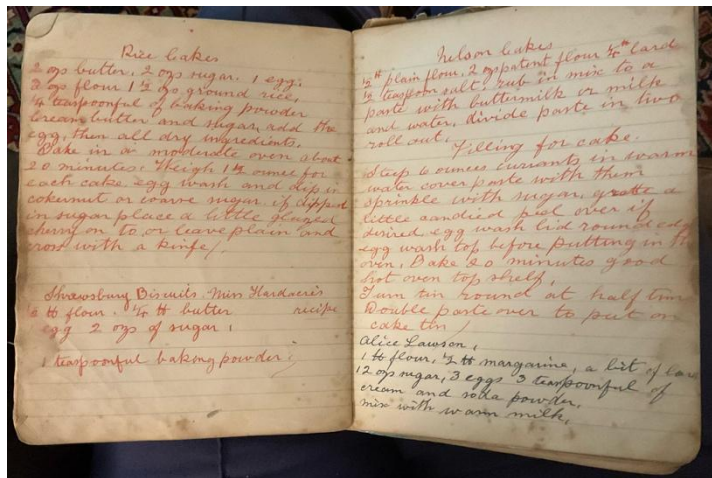 Rice Cakes
2 ozs butter. 2 ozs sugar. 1 egg.
3 ozs flour 1½ ozs ground rice,
¼ teaspoonful of baking powder
Cream butter and sugar, add the
egg, then all dry ingredients.
Bake in a moderate oven about
20 minutes. Weigh 1½ ounce for
each cake. egg wash and dip in
cokernut or coarse sugar. if dipped
in sugar place a little glazed
cherry on to or leave plain and
cross with a kinfe/
Shrewsbury Biscuits. Miss Hardacre's
½ lb flour. ¼ lb butter recipe
egg 2 ozs of sugar.
1 teaspoonful baking powder.
Nelson Cakes
½ lb plain flour, 2 ozs patent flour ¼ lb lard
½ teaspoon salt. rub in mix to a
paste with buttermilk or milk
and water, divide paste in two
roll out.
Filling for cake.
Steep 6 ounces currants in warm
water cover paste with them
sprinkle with sugar, grate a
little candied peel over if
desired. egg wash lid round edge
egg wash top before putting in
oven. Bake 20 minutes good
hot oven top shelf.
Turn tin round at half time
Double paste over to put on
cake tin/
Alice Lawson.
1 lb flour, ½ lb margarine, a bit of lard
12 ozs sugar, 3 eggs 3 teaspoonful of
cream and soda powder.
mix with warm milk.